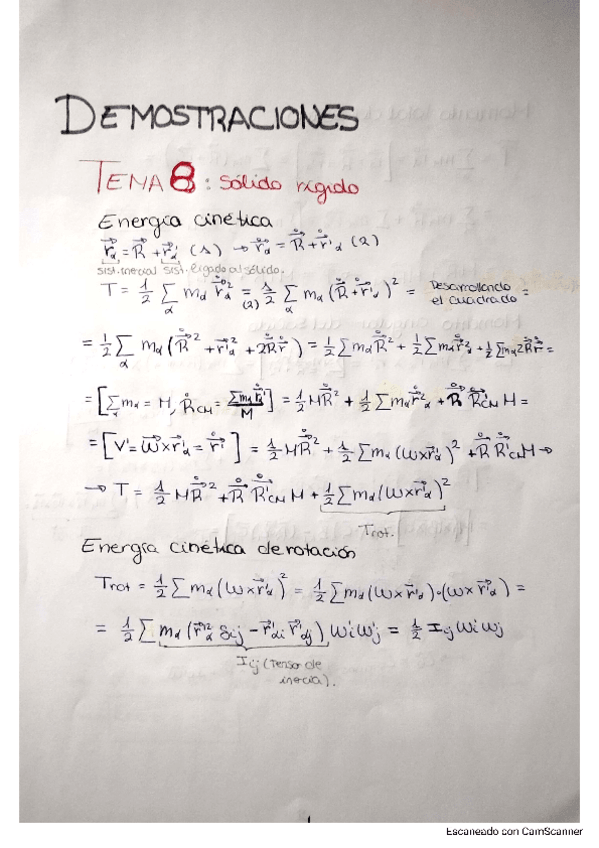 DEMOSTRACIONES
TEMA 8: Sólido rígido
Energía cinética
r⃗α = R⃗ + r⃗'α (1) → ṙ⃗α = Ṙ⃗ + ṙ⃗'α (2)
sist. inercial sist. ligado al sólido.
T = 1/2 ∑α mα ṙ⃗α² =(2) 1/2 ∑α mα (Ṙ⃗ + ṙ⃗'α)² = Desarrollando el cuadrado =
= 1/2 ∑α mα (Ṙ⃗² + ṙ⃗'α² + 2Ṙ⃗ṙ⃗) = 1/2 ∑mαṘ⃗² + 1/2 ∑mαṙ⃗'²α + 1/2 ∑mα2Ṙ⃗ṙ⃗ =
= [∑α mα = M, ṘCM = ∑mα ṙ'/M] = 1/2 MṘ⃗² + 1/2 ∑mαṙ⃗'²α + Ṙ⃗ Ṙ⃗'CM M =
= [V' = ω⃗ × r⃗'α = ṙ⃗'] = 1/2 MṘ⃗² + 1/2 ∑mα (ω×r⃗'α)² + Ṙ⃗ Ṙ⃗'CM M →
→ T = 1/2 MṘ⃗² + Ṙ⃗ Ṙ⃗'CM M + 1/2 ∑mα (ω×r⃗'α)²
Trot.
Energía cinética de rotación
Trot = 1/2 ∑ mα (ω×r⃗'α)² = 1/2 ∑ mα (ω×r⃗'α)·(ω×r⃗'α) =
= 1/2 ∑ mα (r⃗'α² δij - r⃗'αi r⃗'αj) ω'i ω'j = 1/2 Iij ωi ωj
Iij (Tensor de
inercia).
Escaneado con CamScanner